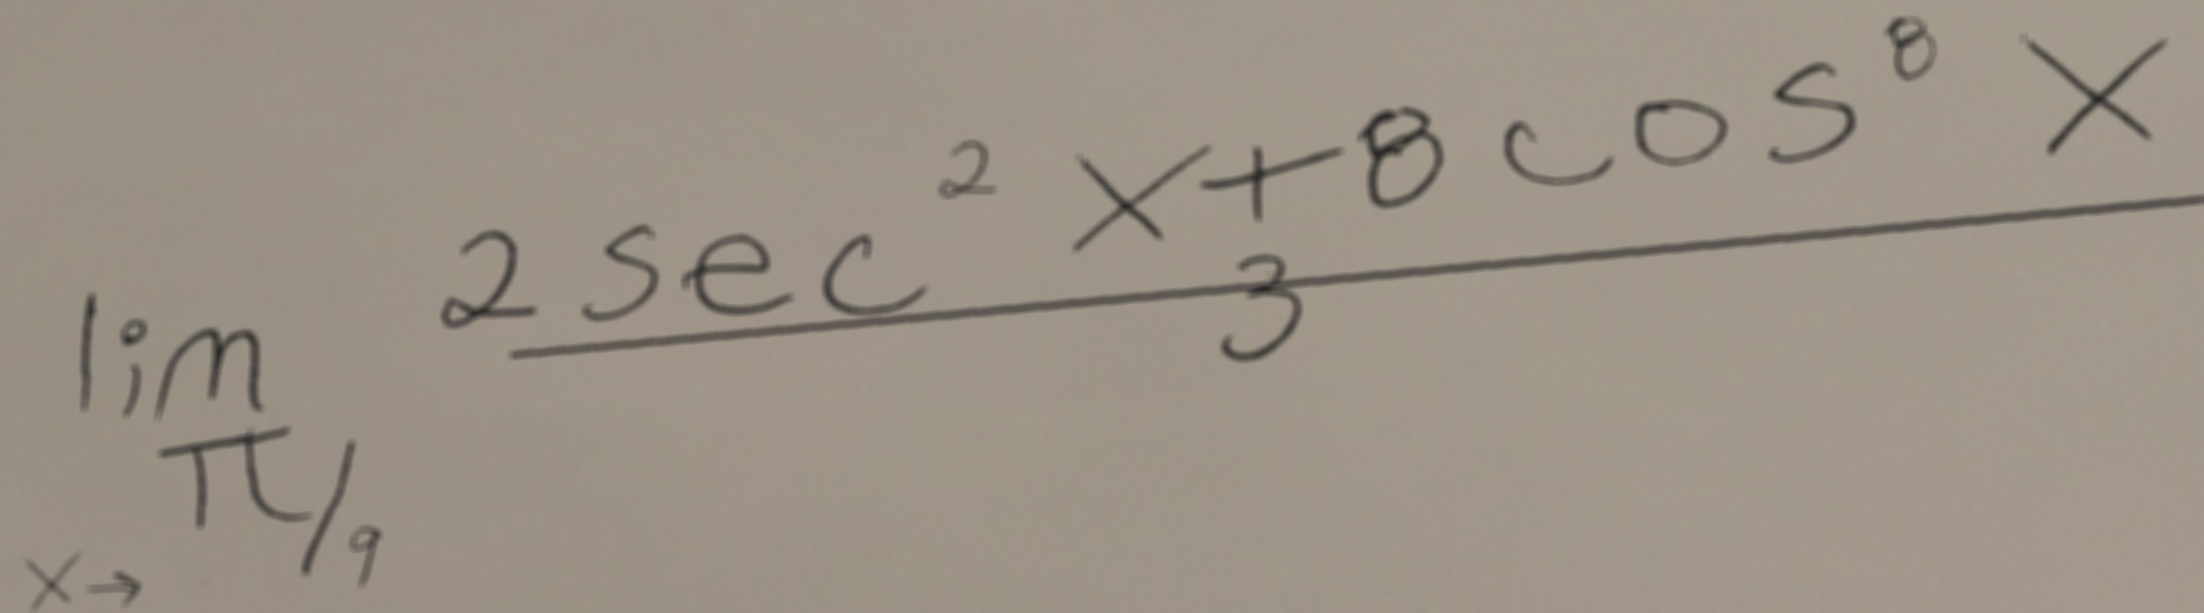 lim x→π/9 (2sec²x+8cos⁸x)/3